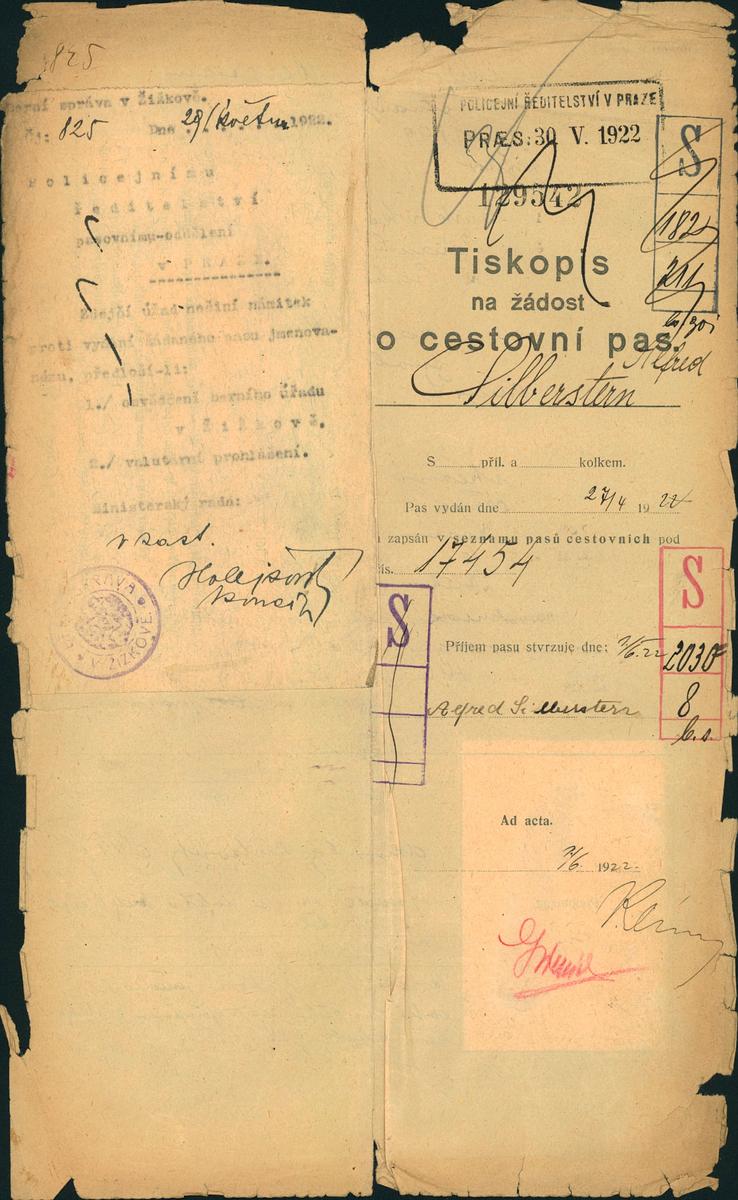 825
Berní správa v Žižkově.
Čj: 825 Dne 29/května 1922.
Policejnímu
ředitelství
pasovnímu-oddělení
v PRAZE.
Zdejší úřad nečiní námitek
proti vydání žádaného pasu jmenova-
nému, předloží-li:
1./ osvědčení berního úřadu
v Žižkově.
2./ valutární prohlášení.
Ministerský rada:
v zast.
SPRÁVA
V ŽIŽKOVĚ
POLICEJNÍ ŘEDITELSTVÍ V PRAZE
PRÆS: 30 V. 1922
129542
S
182
211
Tiskopis
na žádost
o cestovní pas.
Alfred
Silberstern
S příl. a kolkem.
Pas vydán dne 27/4 1922
zapsán v seznamu pasů cestovních pod
čís. 17454
S
S
2030
8
Příjem pasu stvrzuje dne: 2/6. 22
Alfred Silberstern
Ad acta.
2/6. 1922.